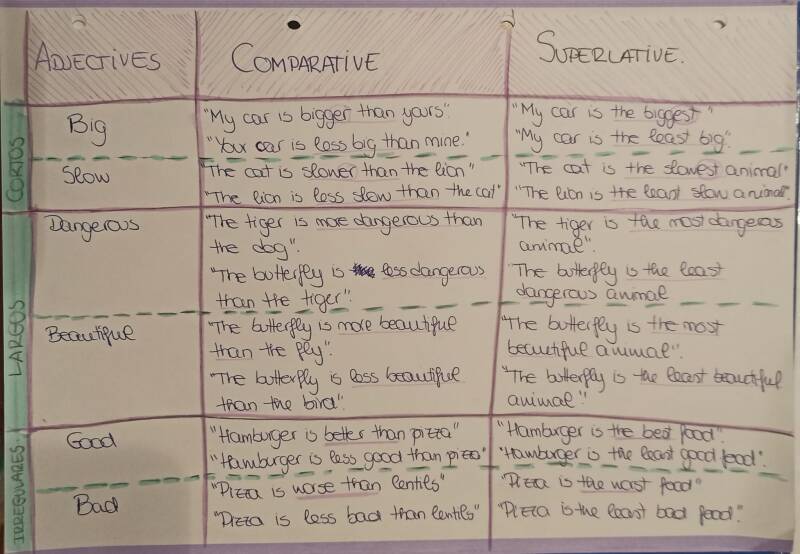 ADJECTIVES
COMPARATIVE
SUPERLATIVE.
CORTOS
Big
"My car is bigger than yours".
"Your car is less big than mine."
"My car is the biggest"
"My car is the least big".
Slow
"The cat is slower than the lion"
"The lion is less slow than the cat"
"The cat is the slowest animal"
"The lion is the least slow animal".
LARGOS
Dangerous
"The tiger is more dangerous than
the dog".
"The butterfly is less dangerous
than the tiger".
"The tiger is the most dangeras
animal".
The butterfly is the least
dangerous animal
Beautiful
"The butterfly is more beautiful
than the fly".
"The butterfly is less beautiful
than the bird".
"The butterfly is the most
beautiful animal".
"The butterfly is the least beautiful
animal".
IRREGULARES.
Good
"Hamburger is better than pizza"
"Hamburger is less good than pizza"
"Hamburger is the best food".
"Hamburger is the least good food".
Bad
"Pizza is worse than lentils"
"Pizza is less bad than lentils"
"Pizza is the worst food"
"Pizza is the least bad food".